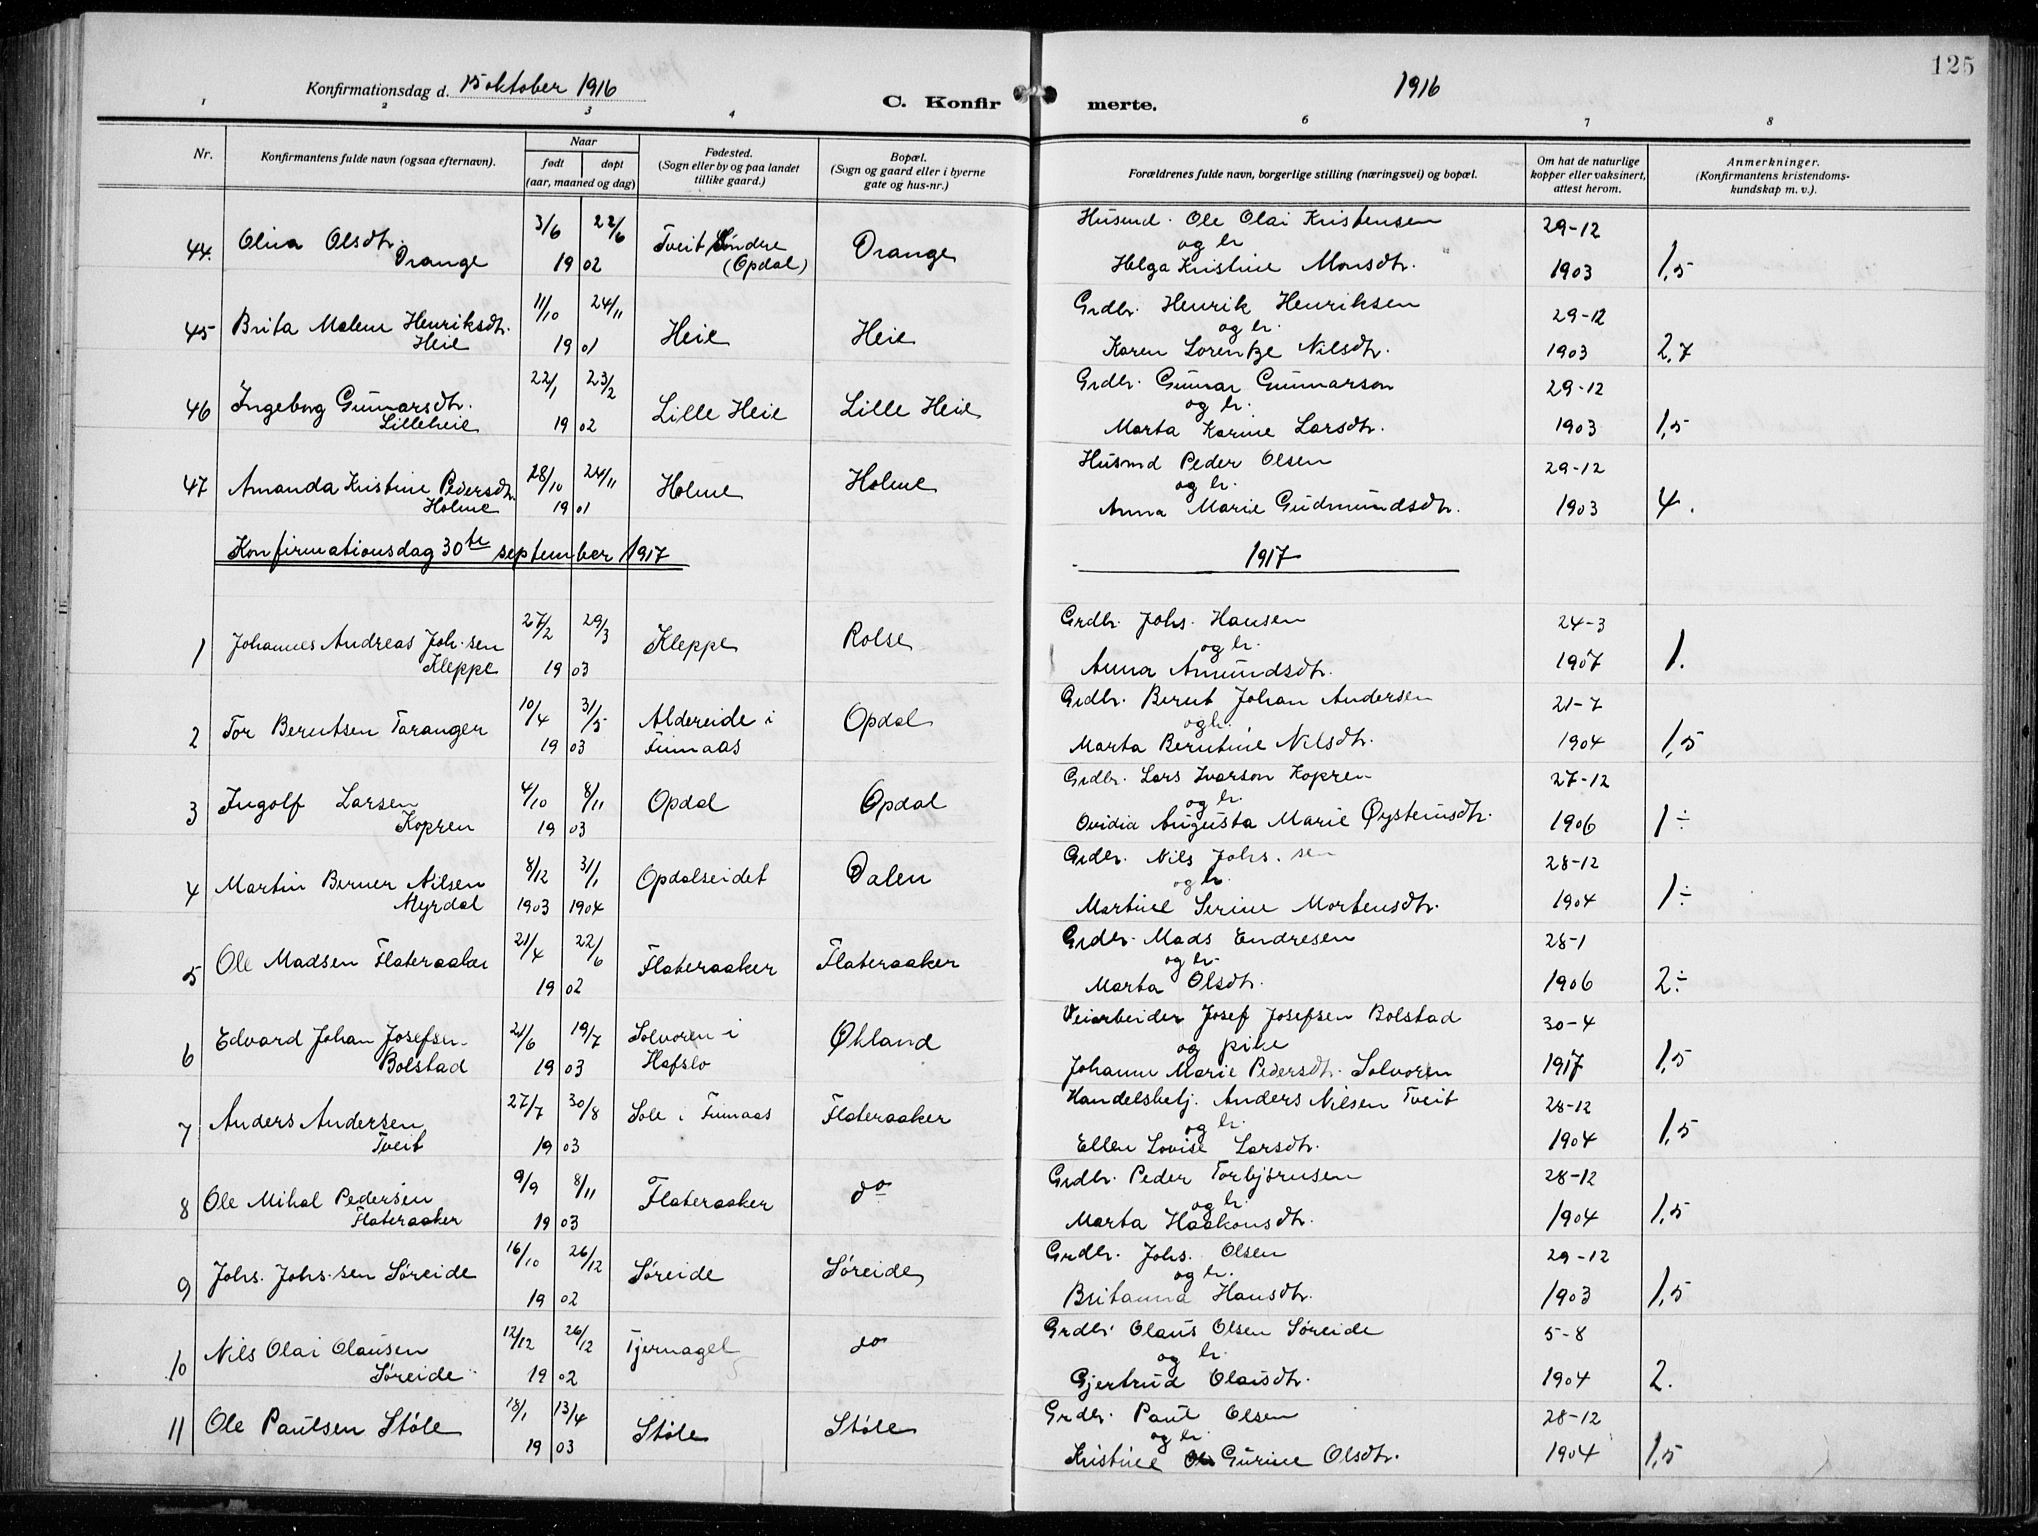 125
Konfirmationsdag d. 15 oktober 1916
C. Konfirmerte.
1916
1 2 3 4 6 7 8
Nr. Konfirmantens fulde navn (ogsaa efternavn). Naar født døpt (aar, maaned og dag) Fødested. (Sogn eller by og paa landet tillike gaard.) Bopæl. (Sogn og gaard eller i byerne gate og hus-nr.) Forældrenes fulde navn, borgerlige stilling (næringsvei) og bopæl. Om hat de naturlige kopper eller vaksinert, attest herom. Anmerkninger. (Konfirmantens kristendomskundskap m. v.).
44. Oliva Olsdtr. 3/6 22/6 Tveit Søndre Drange Husmd. Ole Olai Kristensen 29-12
Drange 1902 (Opdal) og hr Helga Kristine Monsdtr. 1903 1,5
45 Brita Malene Henriksdtr. 11/10 24/11 Heie Heie Grdbr. Henrik Henriksen 29-12
Heie 1901 og hr. Karen Lorentze Nilsdtr. 1903 2,7
46 Ingeborg Gunnarsdtr. 22/1 23/2 Lille Heie Lille Heie Grdbr. Gunnar Gunnarson 29-12
Lilleheie 1902 og hr. Marta Karine Larsdtr. 1903 1,5
47 Amanda Kristine Pedersdtr. 28/10 24/11 Holme Holme Husmd Peder Olsen 29-12
Holme 1901 og hr. Anna Marie Gudmundsdtr. 1903 4.
Konfirmationsdag 30te september 1917
1917
1 Johannes Andreas Joh.sen 27/2 29/3 Kleppe Rolse Grdbr. Johs. Hansen 24-3
Kleppe 1903 og hr. Anna Amundsdtr. 1907 1.
2 Tor Berntsen Taranger 10/4 31/5 Aldereide i Opdal Grdbr. Bernt Johan Andersen 21-7
1903 Finnaas og hr. Marta Berntine Nilsdtr. 1904 1,5
3 Ingolf Larsen 4/10 8/11 Opdal Opdal Grdbr. Lars Ivarson Kopren 27-12
Kopren 1903 og hr. Ovidia Augusta Marie Øysteinsdtr. 1906 1÷
4 Martin Berner Nilsen 8/12 31/1 Opdalseidet Dalen Grdbr. Nils Johs.sen 28-12
Myrdal 1903 1904 og hr. Martine Serine Mortensdtr. 1904 1÷
5 Ole Madsen Flateraaker 21/4 22/6 Flateraaker Flateraaker Grdbr. Mads Endresen 28-1
1902 og hr. Marta Olsdtr. 1906 2÷
6 Edvard Johan Josefsen 21/6 19/7 Solvoren i Økland Veiarbeider Josef Josefsen Bolstad 30-4
Bolstad 1903 Hafslo og pike Johanne Marie Pedersdtr. Solvoren 1917 1,5
7 Anders Andersen 27/7 30/8 Sole i Finnaas Flateraaker Handelsbetj. Anders Nilsen Tveit 28-12
Tveit 1903 og hr. Ellen Lovise Larsdtr. 1904 1,5
8 Ole Mihal Pedersen 9/9 8/11 Flateraaker do Grdbr. Peder Torbjørnsen 28-12
Flateraaker 1903 og hr. Marta Haakonsdtr. 1904 1,5
9 Johs. Johs.sen Søreide 16/10 26/12 Søreide Søreide Grdbr. Johs. Olsen 29-12
1902 og hr. Britanna Hansdtr. 1903 1,5
10 Nils Olai Olausen 12/12 26/12 Tjernagel do Grdbr. Olaus Olsen Søreide 5-8
Søreide 1902 og hr. Gjertrud Olausdtr. 1904 2.
11 Ole Paulsen Støle 18/1 13/4 Støle Støle Grdbr. Paul Olsen 28-12
1903 og hr. Kristine Gurine Olsdtr. 1904 1,5